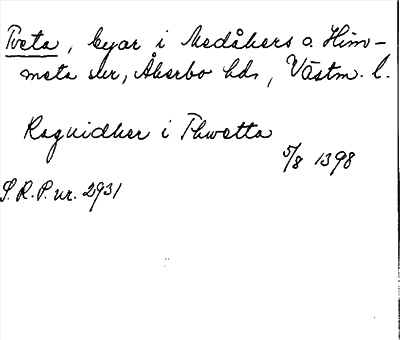 Tveta, byar i Medåkers o. Him-
meta snr, Åkerbo hd, Västm. l.
Raguidher i Thwetta
5/8 1398
S.R.P. nr. 2931